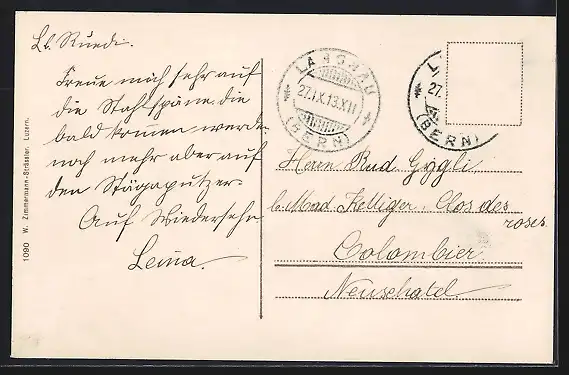 Lb. Ruedi.
Freue mich sehr auf
die Stahlspäne, die
bald kommen werden
noch mehr aber auf
den Stägaputzer.
Auf Wiedersehn
Leina.
LANGNAU
27.IX.13.XII
(BERN)
L
27.
(BERN)
Herrn Rud. Gygli
b. Mad. Kelliger. Clos des
roses.
Colombier
Neuchatel
1090 W. Zimmermann-Strässler, Luzern.